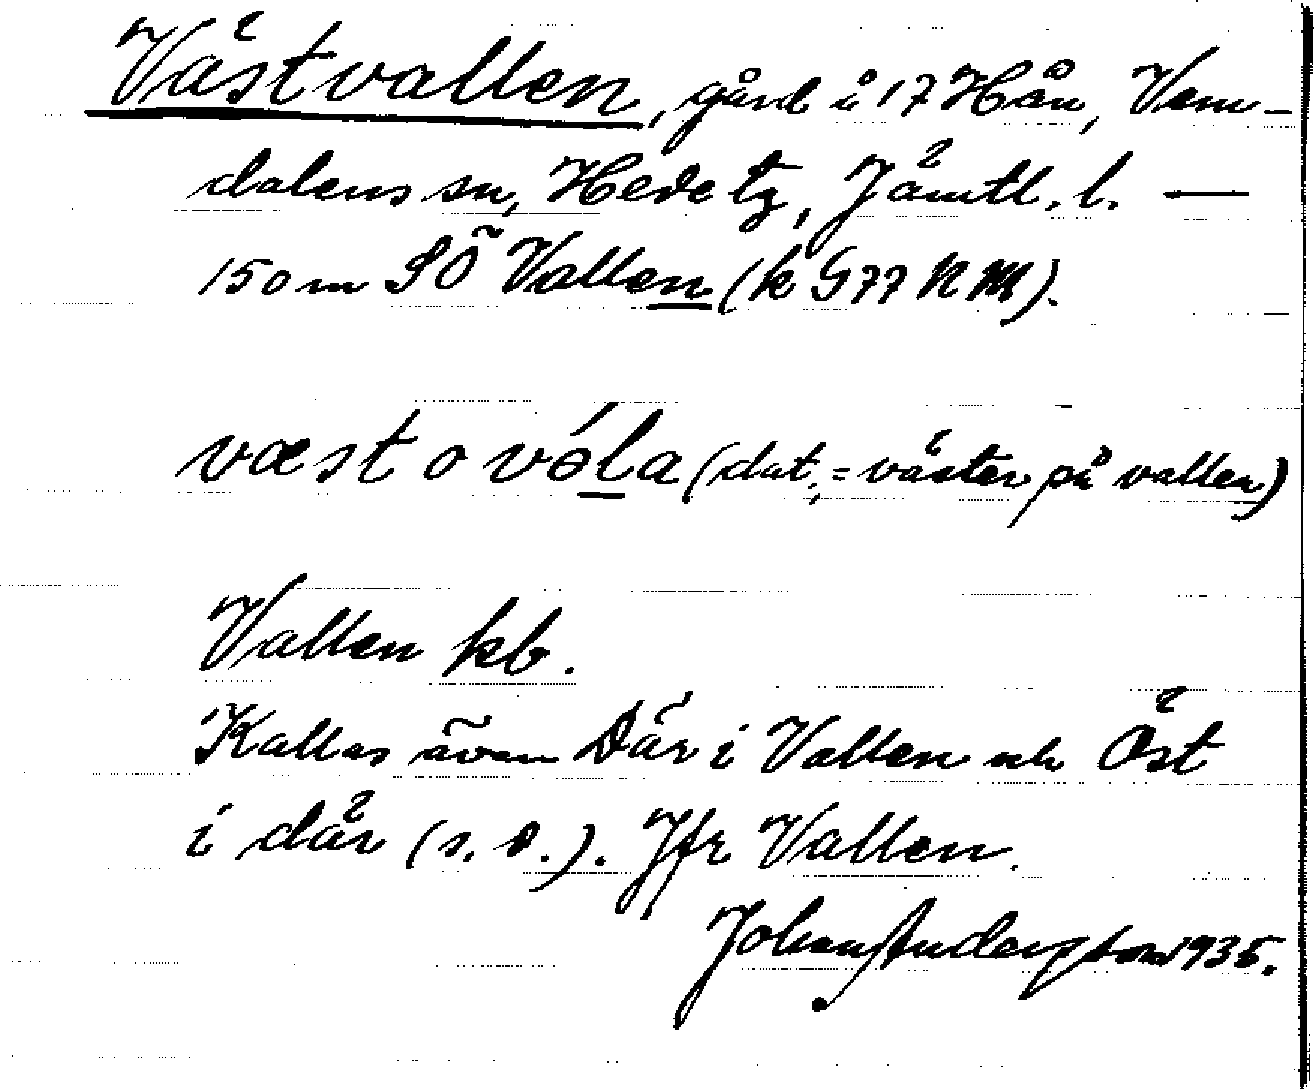 Västvallen, gård å 17 Hån, Vem-
dalens sn, Hede tg, Jämtl. l. —
150 m SÖ Vallen (k G 77 N M).
væst o vóla (dat., = väster på vallen)
Vallen kb.
Kallas även Där i Vallen och Öst
i där (s. d.). Jfr Vallen.
Johan Anderzson 1935.